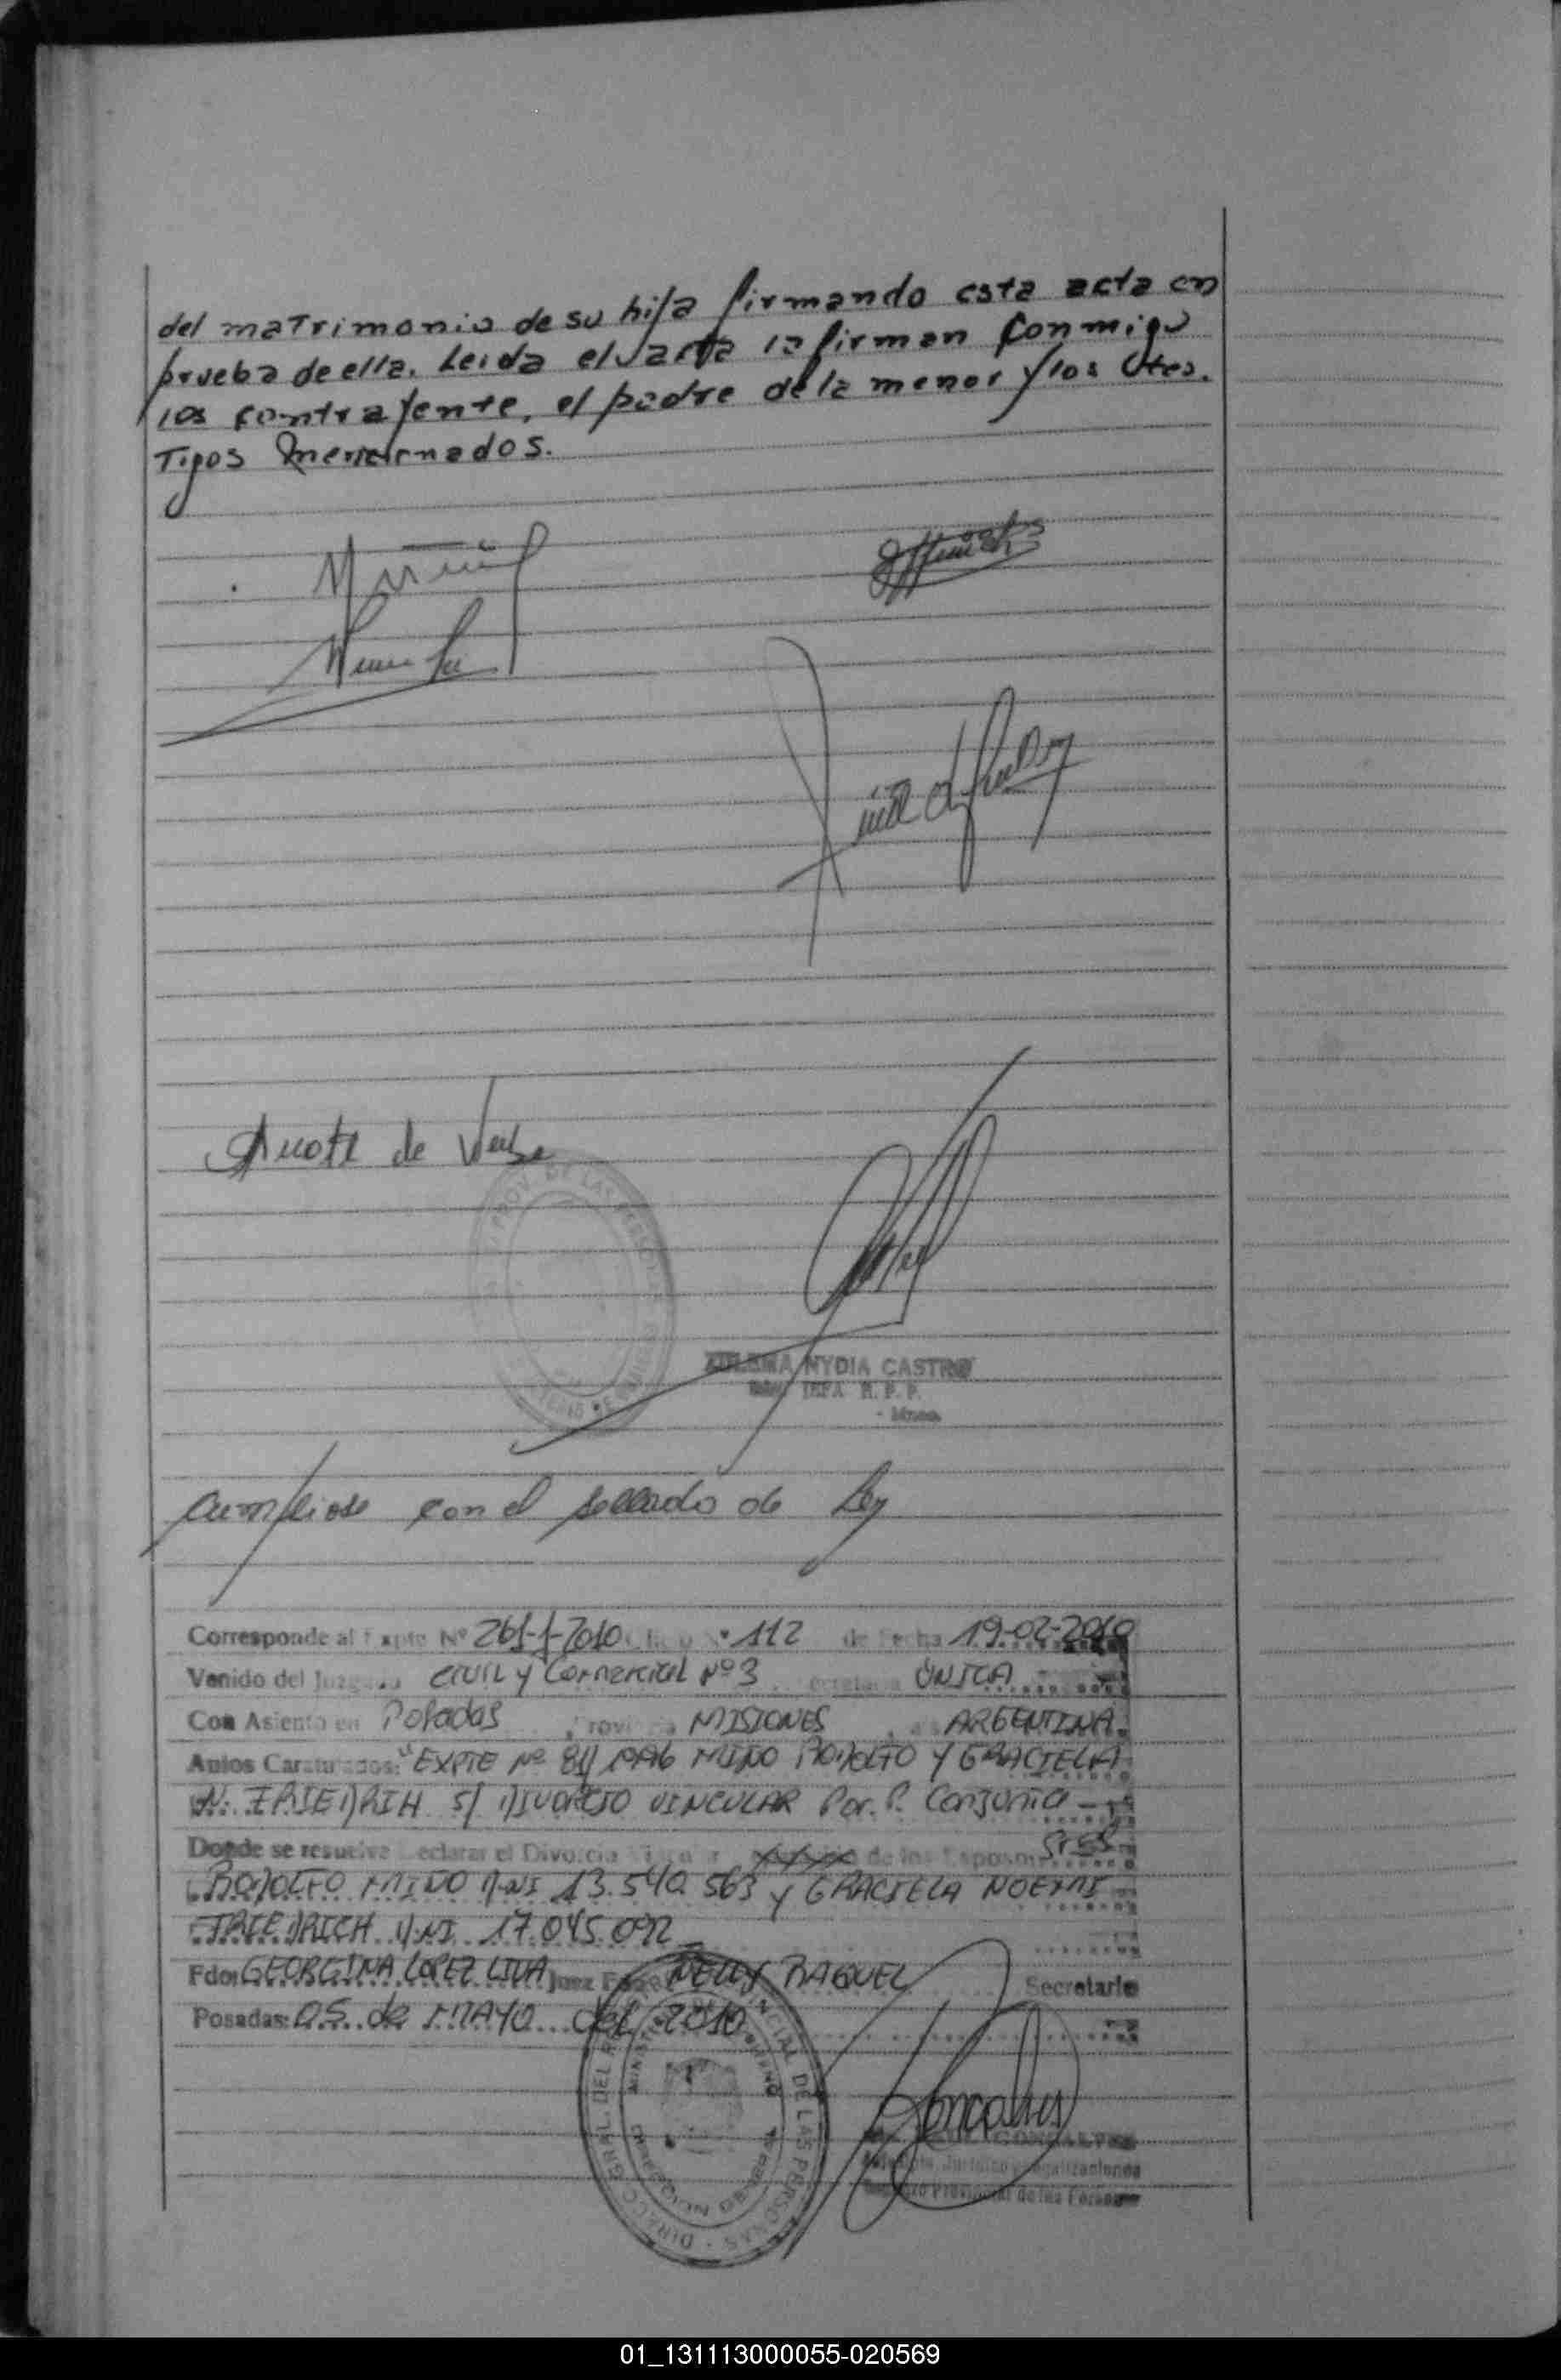 del matrimonio de su hija firmando esta acta en
prueba de ella. Leida el acta la firman conmigo
los contrayente, el padre de la menor y los tes.
Tigos mencionados.
de
ZULEMA NYDIA CASTRO
JEFA R. P. P.
Cumpliose con el sellado de Ley
Corresponde al Expte Nº 261-1-2010 Oficio Nº 112 de Fecha 19-02-2010
Venido del Juzgado CIVIL y Comercial Nº 3 Secretaria ÚNICA
Con Asiento en Posadas, Provincia MISIONES, ARGENTINA.
Autos Caratulados: "EXPTE Nº MIÑO RODOLFO Y GRACIELA
N. FRIEDRIH S/ DIVORCIO VINCULAR Por. P. Conjunta
Donde se resuelve Declarar el Divorcio Vincular de los Esposos Sres
RODOLFO MIÑO DNI 13.540.563 y GRACIELA NOEMI
FRIEDRICH DNI 17.045.092
Fdo: GEORGINA LOPEZ Juez NELLY RAQUEL Secretario
Posadas: 05 de MAYO del 2010
DIRECC. GRAL. DEL PROVINCIAL DE LAS PERSONAS
GONCALVES
Registro Provincial de las Personas
01_131113000055-020569